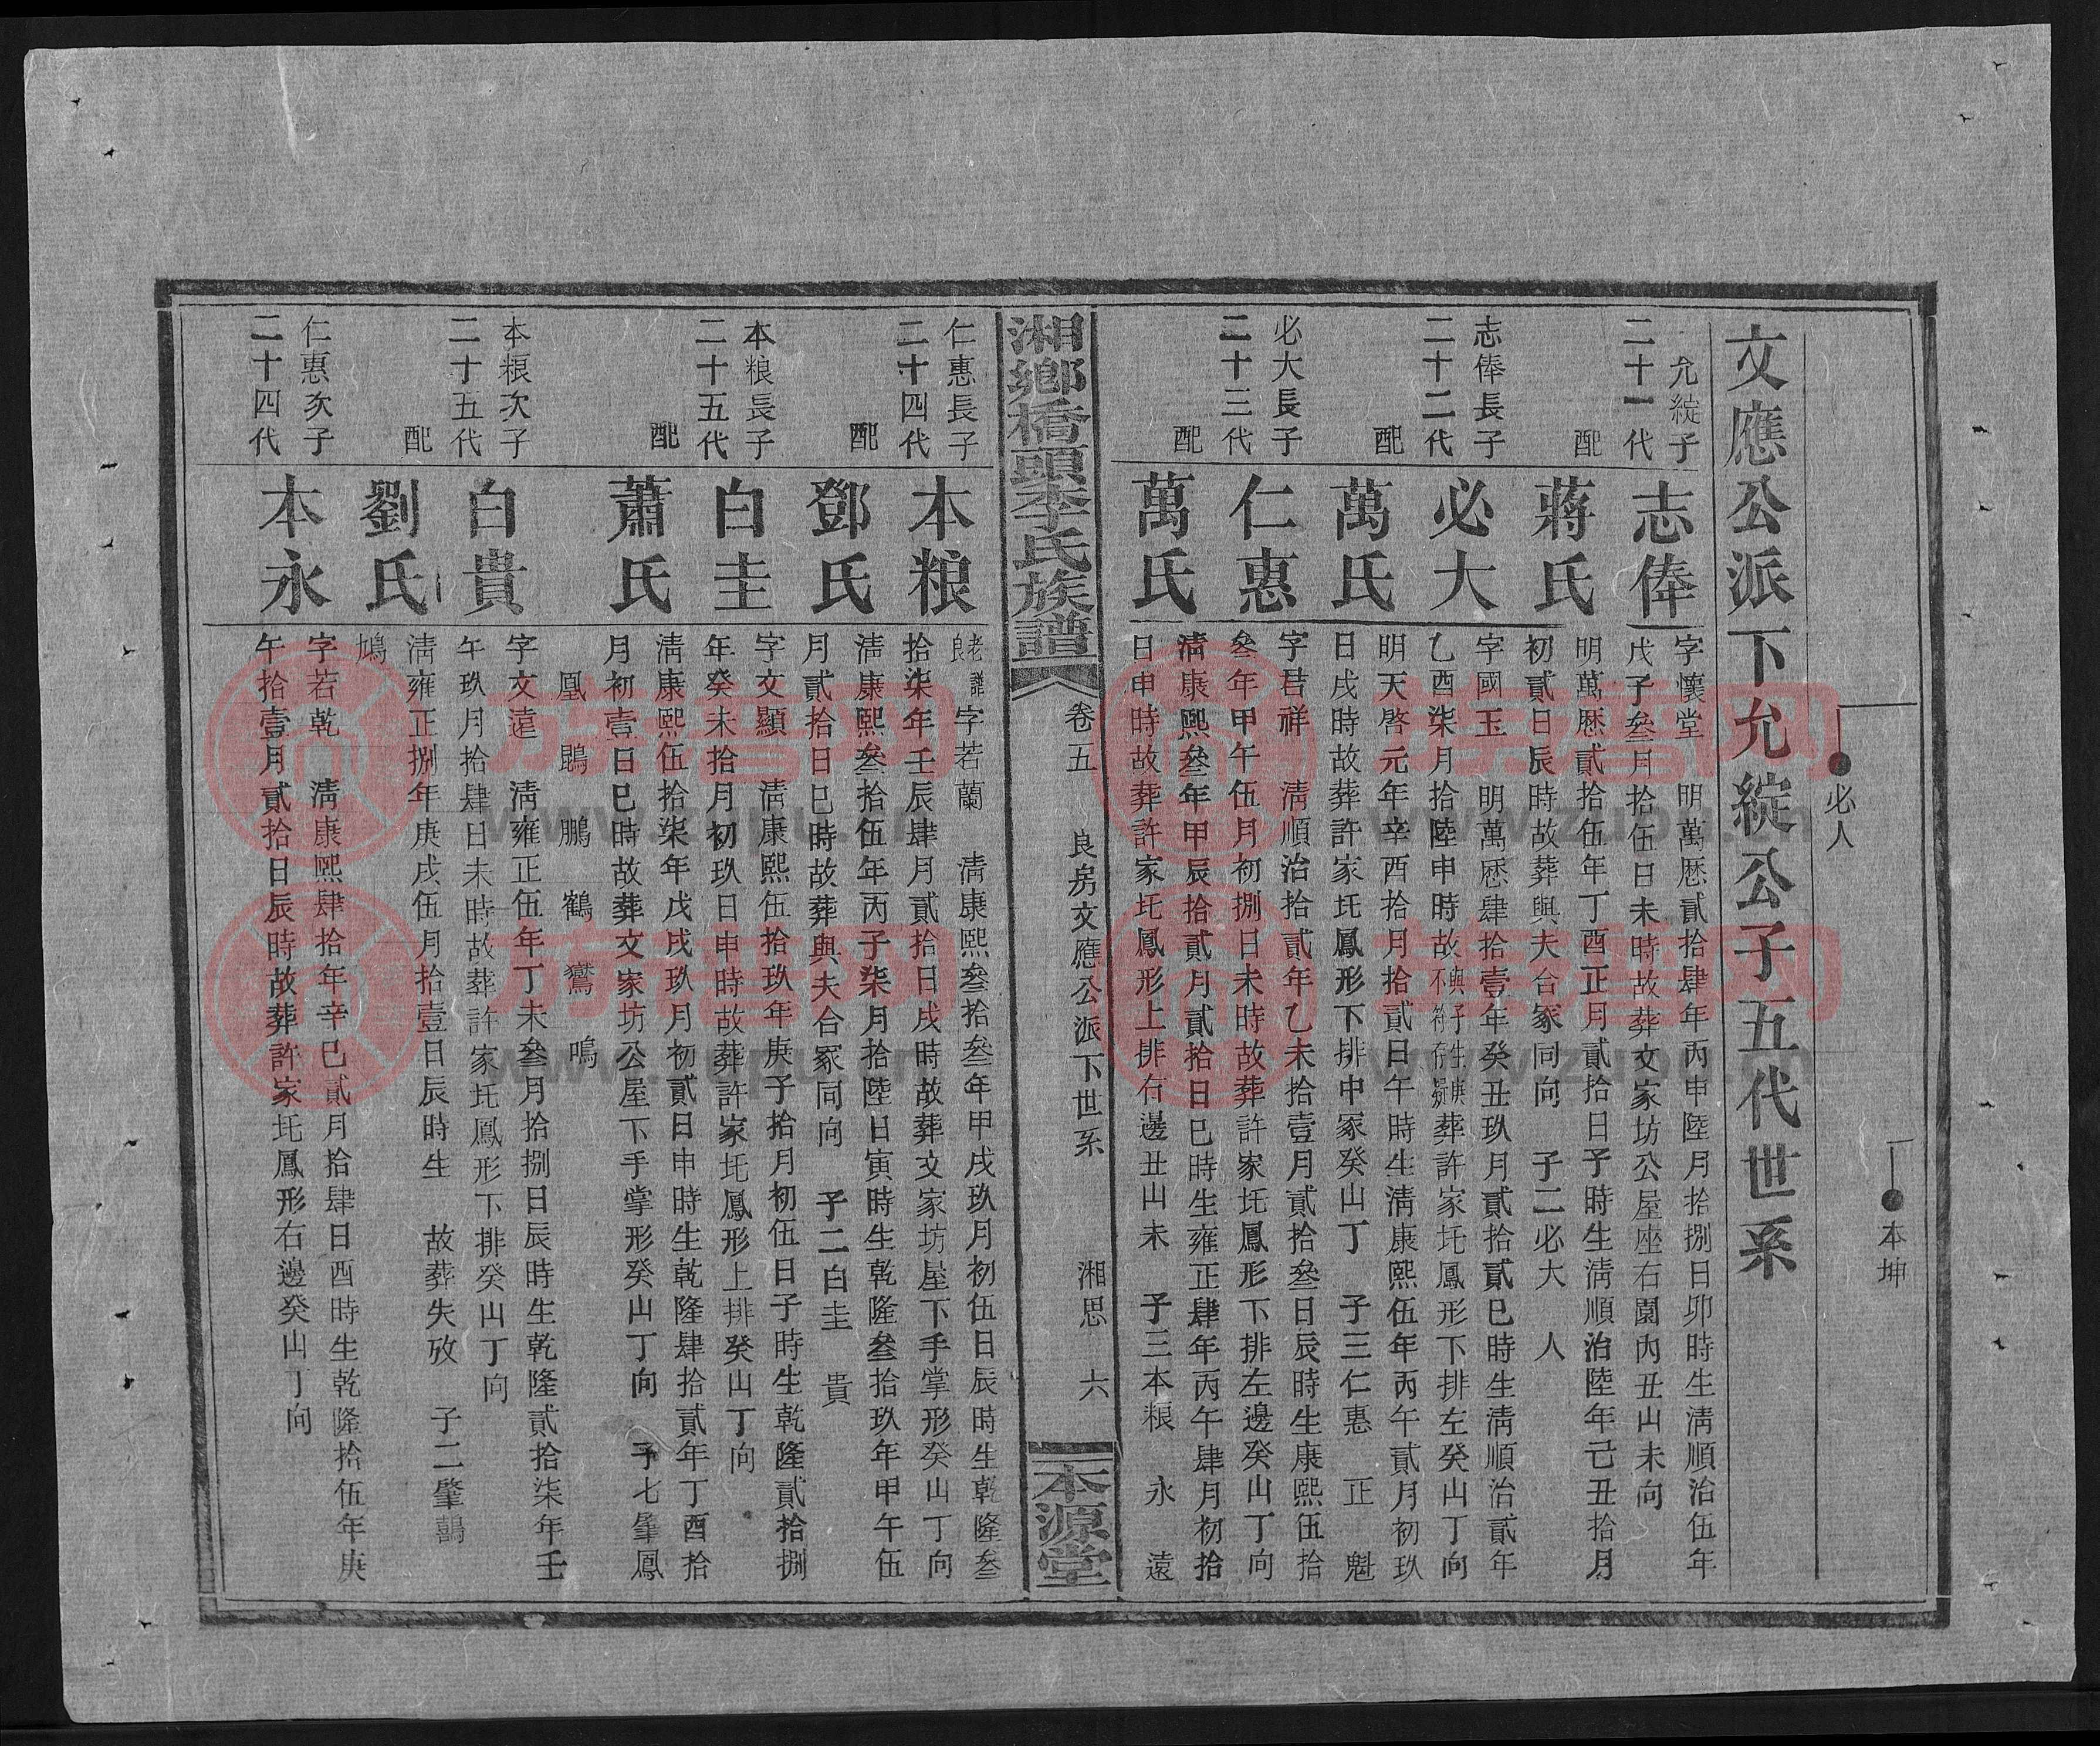 必人
本坤
文應公派下允綻公子五代世系
允綻子
二十一代
志俸
字懷堂　明萬歷貳拾肆年丙申陸月拾捌日卯時生淸順治伍年
戊子叁月拾伍日未時故葬文家坊公屋座右園內丑山未向
配
蔣氏
明萬歷貳拾伍年丁酉正月貳拾日子時生淸順治陸年己丑拾月
初貳日辰時故葬與夫合冢同向　子二必大　人
志俸長子
二十二代
必大
字國玉　明萬歷肆拾壹年癸丑玖月貳拾貳巳時生淸順治貳年
乙酉柒月拾陸申時故與子生庚不符存疑葬許家圫鳳形下排左癸山丁向
配
萬氏
明天啓元年辛酉拾月拾貳日午時生淸康熙伍年丙午貳月初玖
日戌時故葬許家圫鳳形下排中冢癸山丁　子三仁惠　正　魁
必大長子
二十三代
仁惠
字君祥　淸順治拾貳年乙未拾壹月貳拾叁日辰時生康熙伍拾
叁年甲午伍月初捌日未時故葬許家圫鳳形下排左邊癸山丁向
配
萬氏
淸康熙叁年甲辰拾貳月貳拾日巳時生雍正肆年丙午肆月初拾
日申時故葬許家圫鳳形上排右邊丑山未　子三本粮　永　遠
湘鄉橋頭李氏族譜
卷五　良房文應公派下世系　湘思　六
本源堂
仁惠長子
二十四代
本粮
老譜
良
字若蘭　淸康熙叁拾叁年甲戌玖月初伍日辰時生乾隆叁
拾柒年壬辰肆月貳拾日戌時故葬文家坊屋下手掌形癸山丁向
配
鄧氏
淸康熙叁拾伍年丙子柒月拾陸日寅時生乾隆叁拾玖年甲午伍
月貳拾日巳時故葬與夫合冢同向　子二白圭　貴
本粮長子
二十五代
白圭
字文顯　淸康熙伍拾玖年庚子拾月初伍日子時生乾隆貳拾捌
年癸未拾月初玖日申時故葬許家圫鳳形上排癸山丁向
配
蕭氏
淸康熙伍拾柒年戊戌玖月初貳日申時生乾隆肆拾貳年丁酉拾
月初壹日巳時故葬文家坊公屋下手掌形癸山丁向　子七肇鳳
凰　鵾　鵬　鶴　鸞　鳴
本粮次子
二十五代
白貴
字文遠　淸雍正伍年丁未叁月拾捌日辰時生乾隆貳拾柒年壬
午玖月拾肆日未時故葬許家圫鳳形下排癸山丁向
配
劉氏
淸雍正捌年庚戌伍月拾壹日辰時生　故葬失攷　子二肇鵲
鳩
仁惠次子
二十四代
本永
字若乾　淸康熙肆拾年辛巳貳月拾肆日酉時生乾隆拾伍年庚
午拾壹月貳拾日辰時故葬許家圫鳳形右邊癸山丁向
族譜网
www.zupu.cn
族譜网
www.zupu.cn
族譜网
www.zupu.cn
族譜网
www.zupu.cn